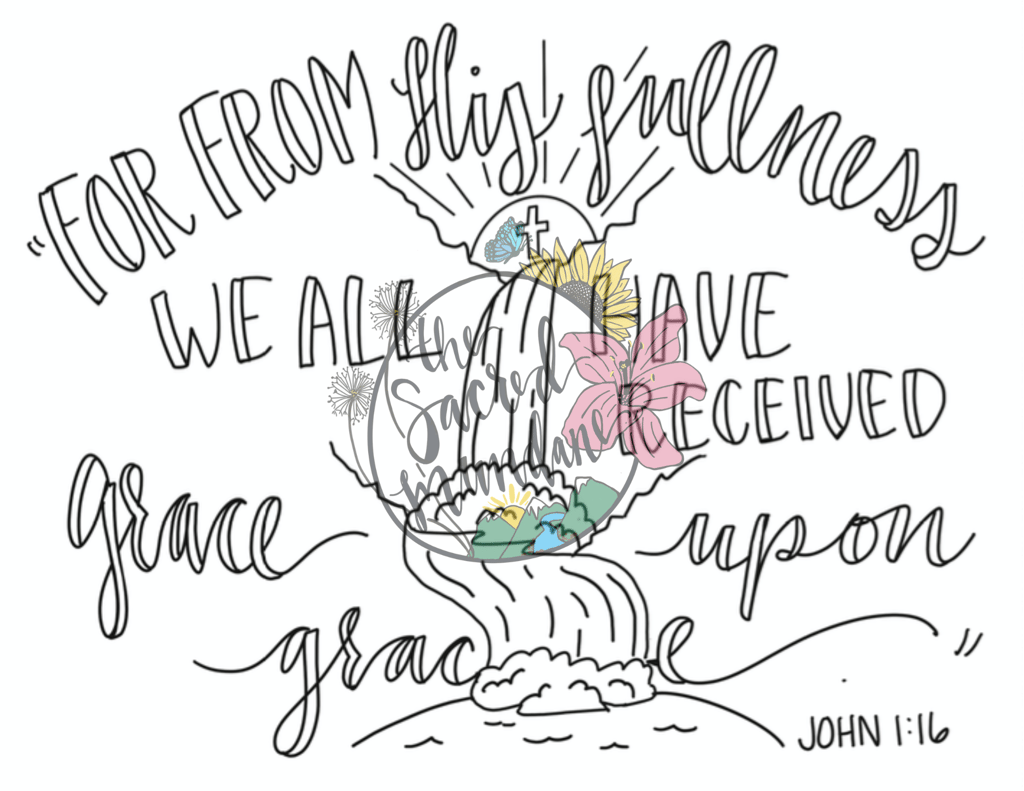 "FOR FROM His fullness
WE ALL HAVE
RECEIVED
grace upon
grace"
JOHN 1:16
the
Sacred
mundane